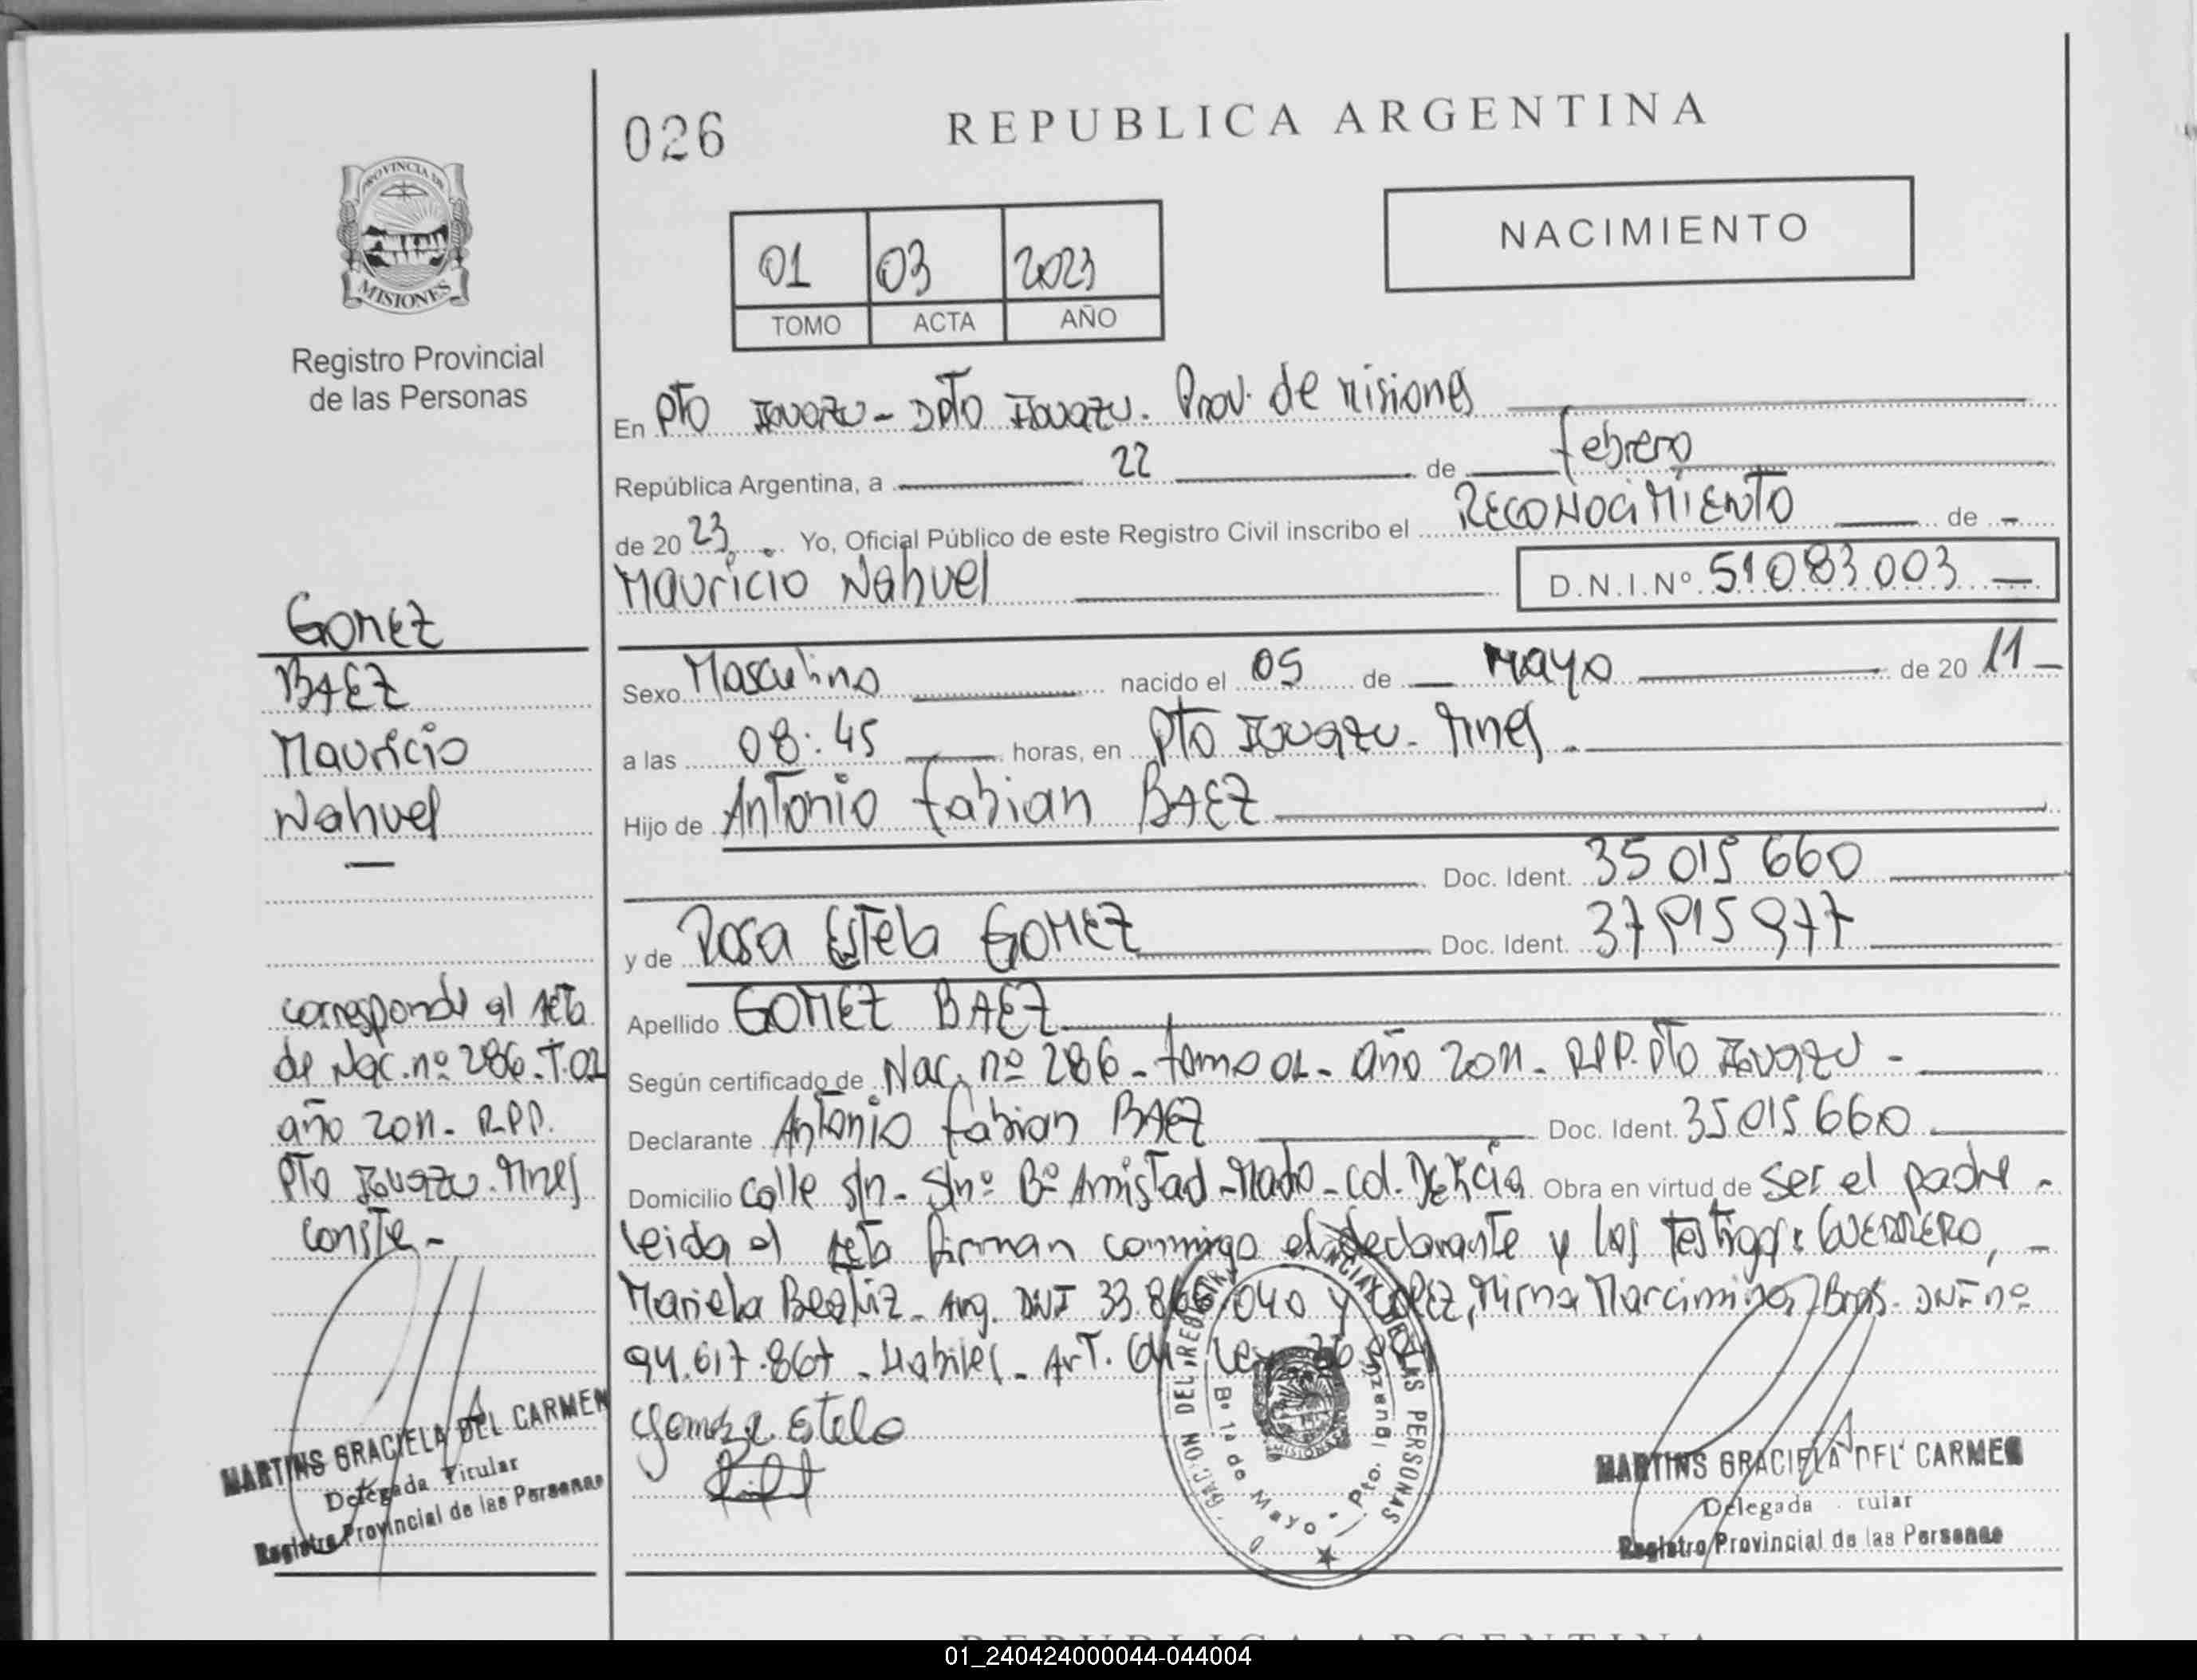 026
REPUBLICA ARGENTINA
PROVINCIA DE
MISIONES
Registro Provincial
de las Personas
NACIMIENTO
01 03 2023
TOMO ACTA AÑO
En Pto Iguazu - Dpto Iguazu. Prov. de Misiones
República Argentina, a 22 de febrero
de 2023. Yo, Oficial Público de este Registro Civil inscribo el RECONOCIMIENTO de -
Mauricio Nahuel D.N.I.Nº 51083003
Sexo Masculino nacido el 05 de Mayo de 2011
a las 08:45 horas, en Pto Iguazu - Mnes.
Hijo de Antonio Fabian BAEZ
Doc. Ident. 35 015 660
y de Rosa Estela GOMEZ Doc. Ident. 37 915 977
Apellido GOMEZ BAEZ
Según certificado de Nac. nº 286 - tomo 01 - año 2011 - RPP. Pto Iguazu -
Declarante Antonio Fabian BAEZ Doc. Ident. 35 015 660
Domicilio calle s/n - S/nº Bº Amistad - Mado - Col. Delicia Obra en virtud de ser el padre -
leida el acta firman conmigo el declarante y los testigos: GUERRERO, -
Mariela Beatriz - Arg. DNI 33.866.040 y LOPEZ, Mirna Marciminea, Bras. DNI nº
94.617.867 - Habiles - Art. Ley
Gomez Estela
GOMEZ
BAEZ
Mauricio
Nahuel
corresponde al acta
de Nac. nº 286 - T. 01
año 2011 - RPP.
Pto Iguazu. Mnes
Conste -
MARTINS GRACIELA DEL CARMEN
Delegada Titular
Registro Provincial de las Personas
DE LAS PERSONAS
MISIONES
Bº 1º de Mayo - Pto. Iguazu
MARTINS GRACIELA DEL CARMEN
Delegada tular
Registro Provincial de las Personas
REPUBLICA ARGENTINA
01_240424000044-044004